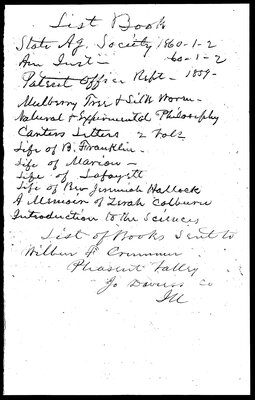 List Book
State Ag. Society 1860-1-2
Am Inst - 60-1-2
Patent Office Rept - 1859-
Mulberry Tree & Silk Worm -
Natural & Experimental Philosophy
Canters Letters 2 Vols
Life of B. Franklin -
Life of Marion -
Life of Lafayett
Life of Rev Jeremiah Hallock
A Memoir of Zerah Colburn
Introduction to the Sciences
List of Books Sent to
Wilbur F Crummer
Pleasent Valley
Jo Daviess Co
Ill